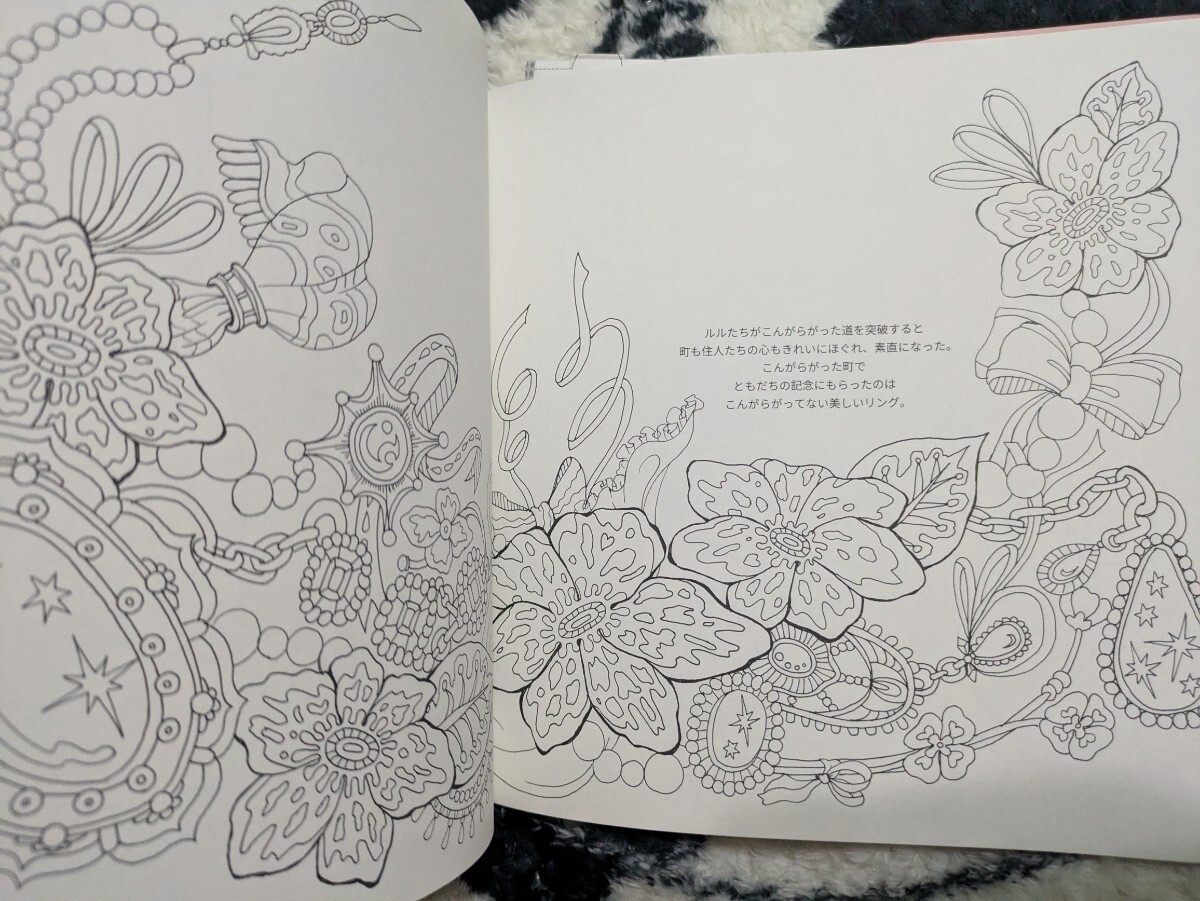 ルルたちがこんがらがった道を突破すると
町も住人たちの心もきれいにほぐれ、素直になった。
こんがらがった町で
ともだちの記念にもらったのは
こんがらがってない美しいリング。